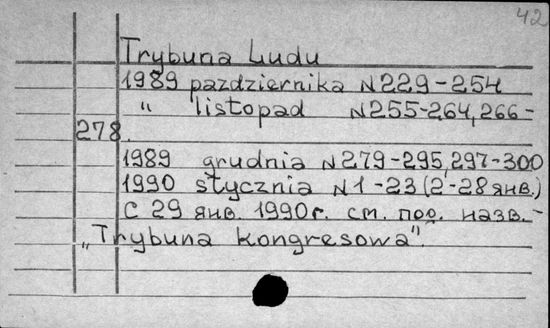 42
Trybuna Ludu
1989 pazdziernika N229-254
" listopad N255-264,266-
278.
1989 grudnia N279-295,297-300
1990 stycznia N1-23(2-28 янв.)
С 29 янв. 1990г. см. под назв.-
„Trybuna kongresowa".